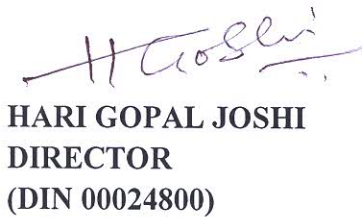 H Joshi
HARI GOPAL JOSHI
DIRECTOR
(DIN 00024800)